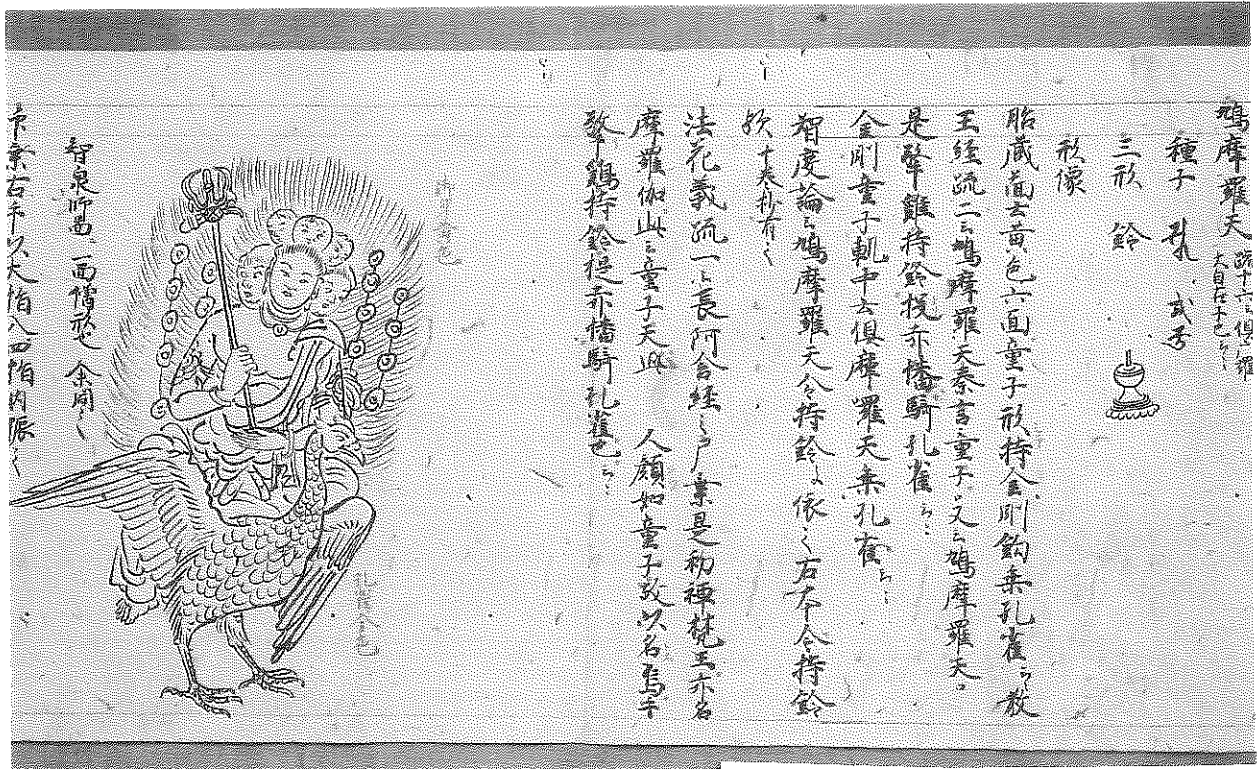 鳩摩羅天 疏十六云俱摩羅
大自在子也云々
種子 乳 或
三形 鈴
形像
胎蔵圖云黄色六面童子形持金剛鈎乗孔雀云々 教
王経疏二云鳩摩羅天秦言童子又云鳩摩羅天
是擎雞持鈴提赤幡騎孔雀云々
金剛童子軌中云俱摩囉天乗孔雀云々
智度論云鳩摩羅天令持鈴 依之右本令持鈴
歟 十巻抄有之
法花義疏一云長阿含経云尸棄是初禅梵王亦名
摩羅伽此云童子天此 人顔如童子故以名焉手
擎鶏持鈴提赤幡騎孔雀也云々
智泉師圖 一面儒形也 余同之
右手以大指入四指内張之